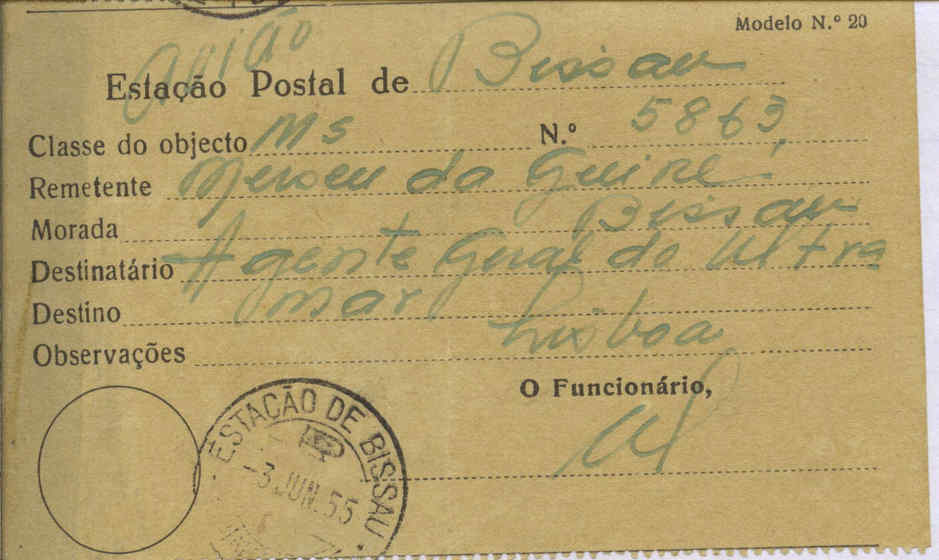 Modelo N.º 20
avião
Estação Postal de Bissau
Classe do objecto Ms N.º 5863
Remetente Museu da Guiné
Morada Bissau
Destinatário Agente Geral do Ultra
Destino mar
Observações Lisboa
O Funcionário,
ESTAÇÃO DE BISSAU
-3 JUN. 55